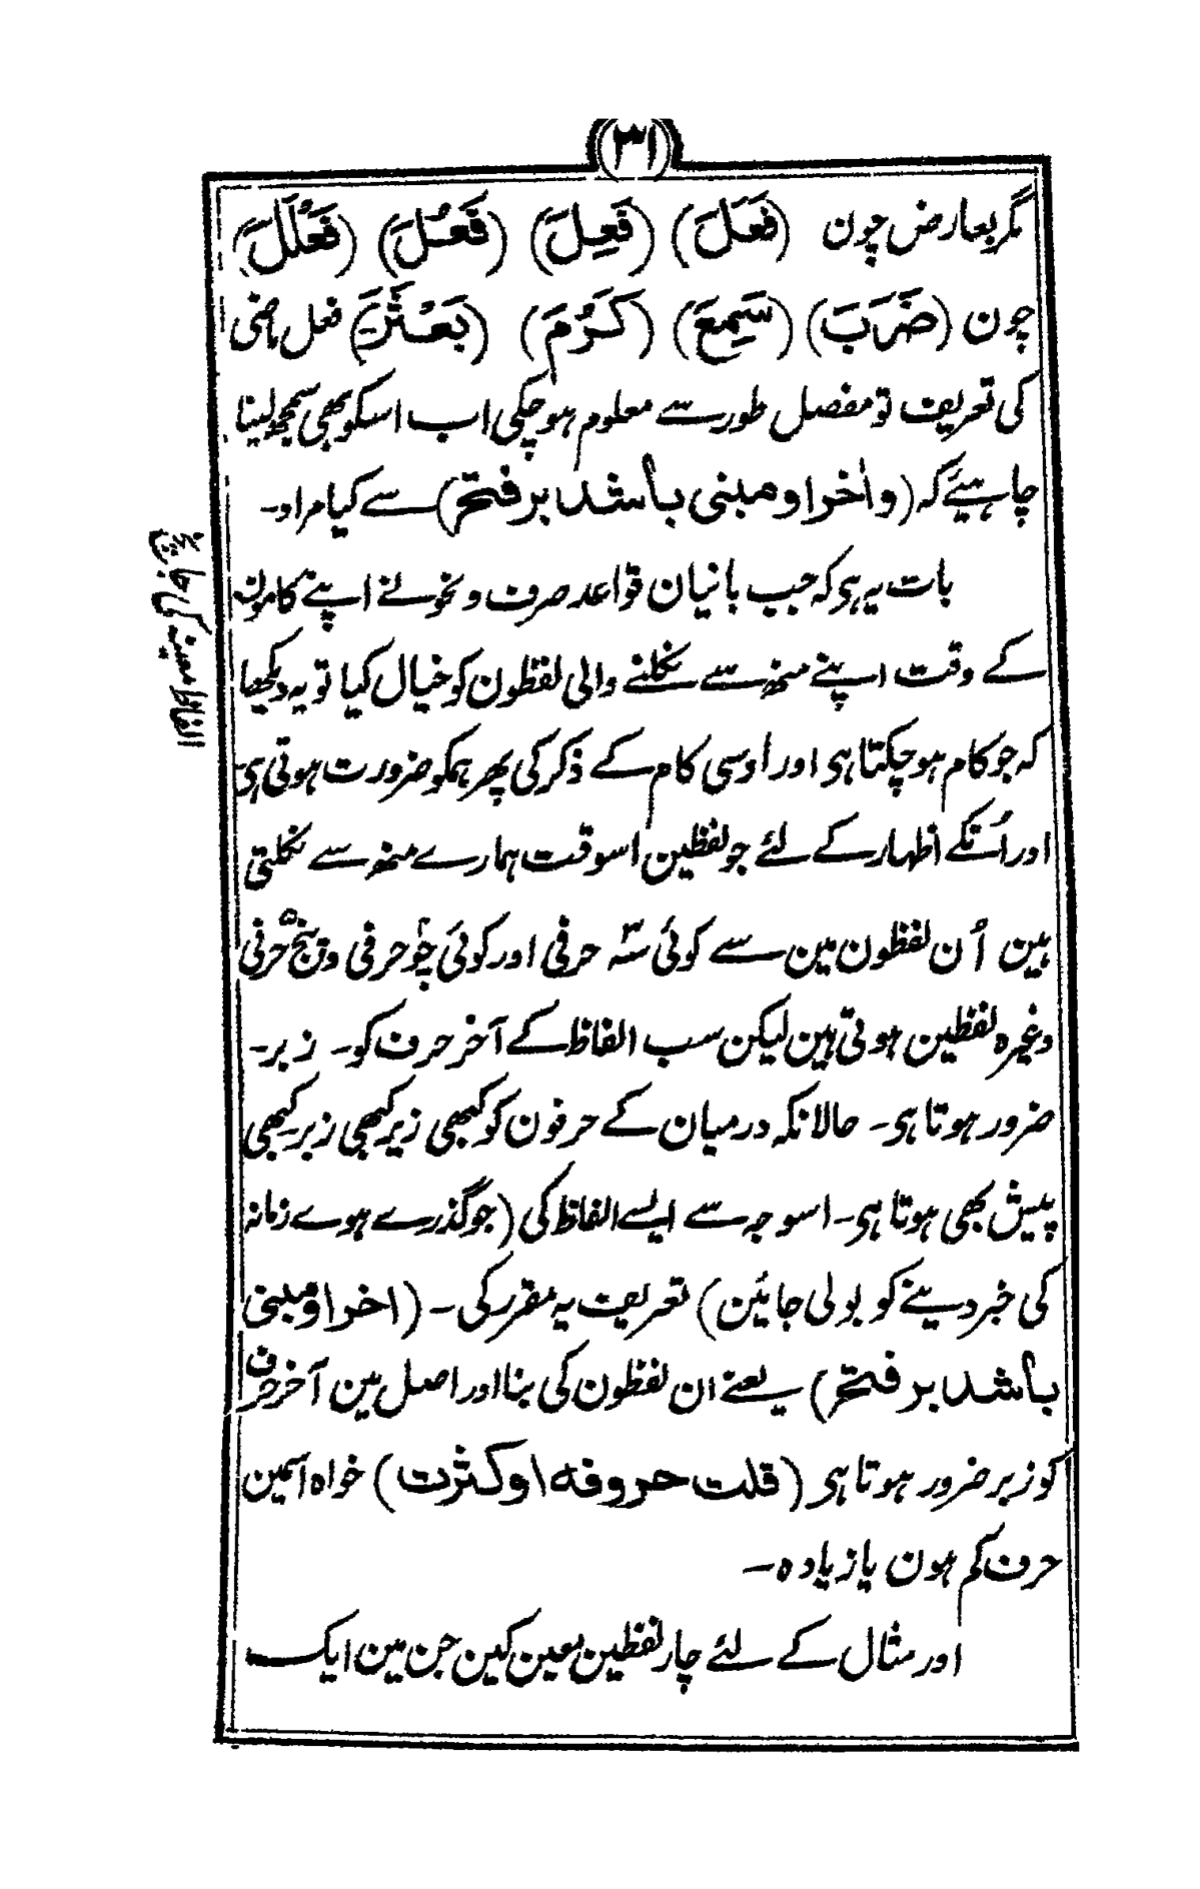 (۳۱)
مگر بعارض چون (فَعَلَ) (فَعِلَ) (فَعُلَ) (فَعْلَلَ)
چون (ضَرَبَ) (سَمِعَ) (کَرُمَ) (بَعْثَرَ) فعل ماضی
کی تعریف تو مفصل طور سے معلوم ہوچکی اب اسکو بھی سمجھ لینا
چاہیئے کہ (واٰخر او مبنی باشد بر فتح) سے کیا مراد۔
بات یہ ہی کہ جب بانیان قواعد صرف و نحو نے اپنے کامون
کے وقت اپنے منھ سے نکلنے والی لفظون کو خیال کیا تو یہ دیکھا
کہ جو کام ہوچکتا ہی اور اُوسی کام کے ذکر کی پھر ہمکو ضرورت ہوتی ہی
اور اُنکے اظہار کے لئے جو لفظین اسوقت ہمارے منھ سے نکلتی
ہین اُن لفظون مین سے کوئی سہ۳ حرفی اور کوئی چو۴ حرفی و پنج۵ حرفی
وغیرہ لفظین ہوتی ہین لیکن سب الفاظ کے آخر حرف کو۔ زبر۔
ضرور ہوتا ہی۔ حالانکہ درمیان کے حرفون کو کبھی زیر کبھی زبر کبھی
پیش بھی ہوتا ہی۔ اسوجہ سے ایسے الفاظ کی (جو گذرے ہوے زمانہ
کی خبر دینے کو بولی جائین) تعریف یہ مقرر کی۔ (اخر او مبنی
باشد بر فتح) یعنے ان لفظون کی بنا اور اصل مین آخر حرف
کو زبر ضرور ہوتا ہی (قلت حروفہ اوکثرت) خواہ اسمین
حرف کم ہون یا زیادہ۔
اور مثال کے لئے چار لفظین معین کین جن مین ایک
الفاظ معینہ کی جانچ